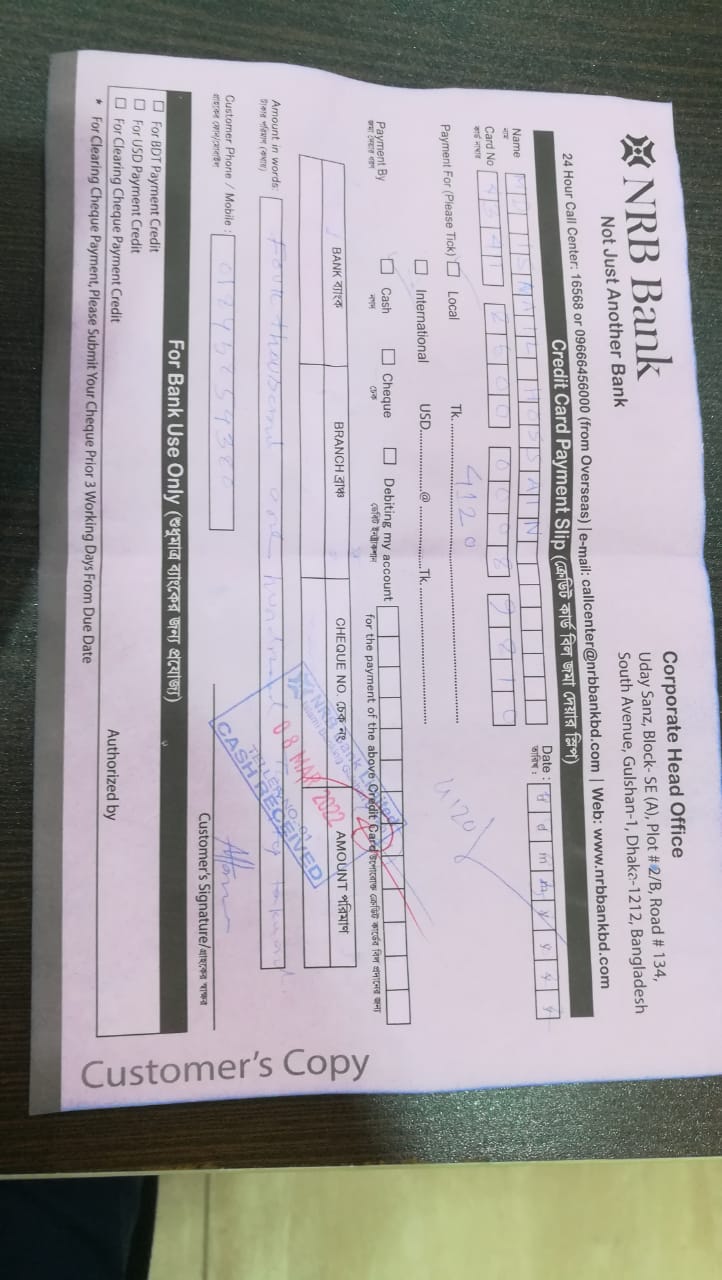 NRB Bank
Not Just Another Bank
Corporate Head Office
Uday Sanz, Block- SE (A), Plot # 2/B, Road # 134,
South Avenue, Gulshan-1, Dhaka-1212, Bangladesh
24 Hour Call Center: 16568 or 09666456000 (from Overseas) | e-mail: callcenter@nrbbankbd.com | Web: www.nrbbankbd.com
Credit Card Payment Slip (ক্রেডিট কার্ড বিল জমা দেয়ার স্লিপ)
Name MD ISMAIL HOSSAIN
নাম
Date :
তারিখ :
Card No
কার্ড নাম্বার
Payment For (Please Tick) Local Tk. 4120
4120/
International USD @ Tk.
Payment By Cash Cheque Debiting my account
জমা দেয়ার ধরণ নগদ চেক
for the payment of the above Credit Card উপরোক্ত ক্রেডিট কার্ডের বিল প্রদানের জন্য
BANK ব্যাংক BRANCH ব্রাঞ্চ CHEQUE NO. চেক নং AMOUNT পরিমাণ
NRB Bank Limited
08 MAR 2022
TELLER NO-01
CASH RECEIVED
Amount in words: Four thousand one hundred
টাকার পরিমাণ (কথায়)
Customer Phone / Mobile :
গ্রাহকের ফোন/মোবাইল
Customer's Signature/গ্রাহকের স্বাক্ষর
For Bank Use Only (শুধুমাত্র ব্যাংকের জন্য প্রযোজ্য)
For BDT Payment Credit
For USD Payment Credit
For Clearing Cheque Payment Credit
Authorized by
* For Clearing Cheque Payment, Please Submit Your Cheque Prior 3 Working Days From Due Date
Customer's Copy